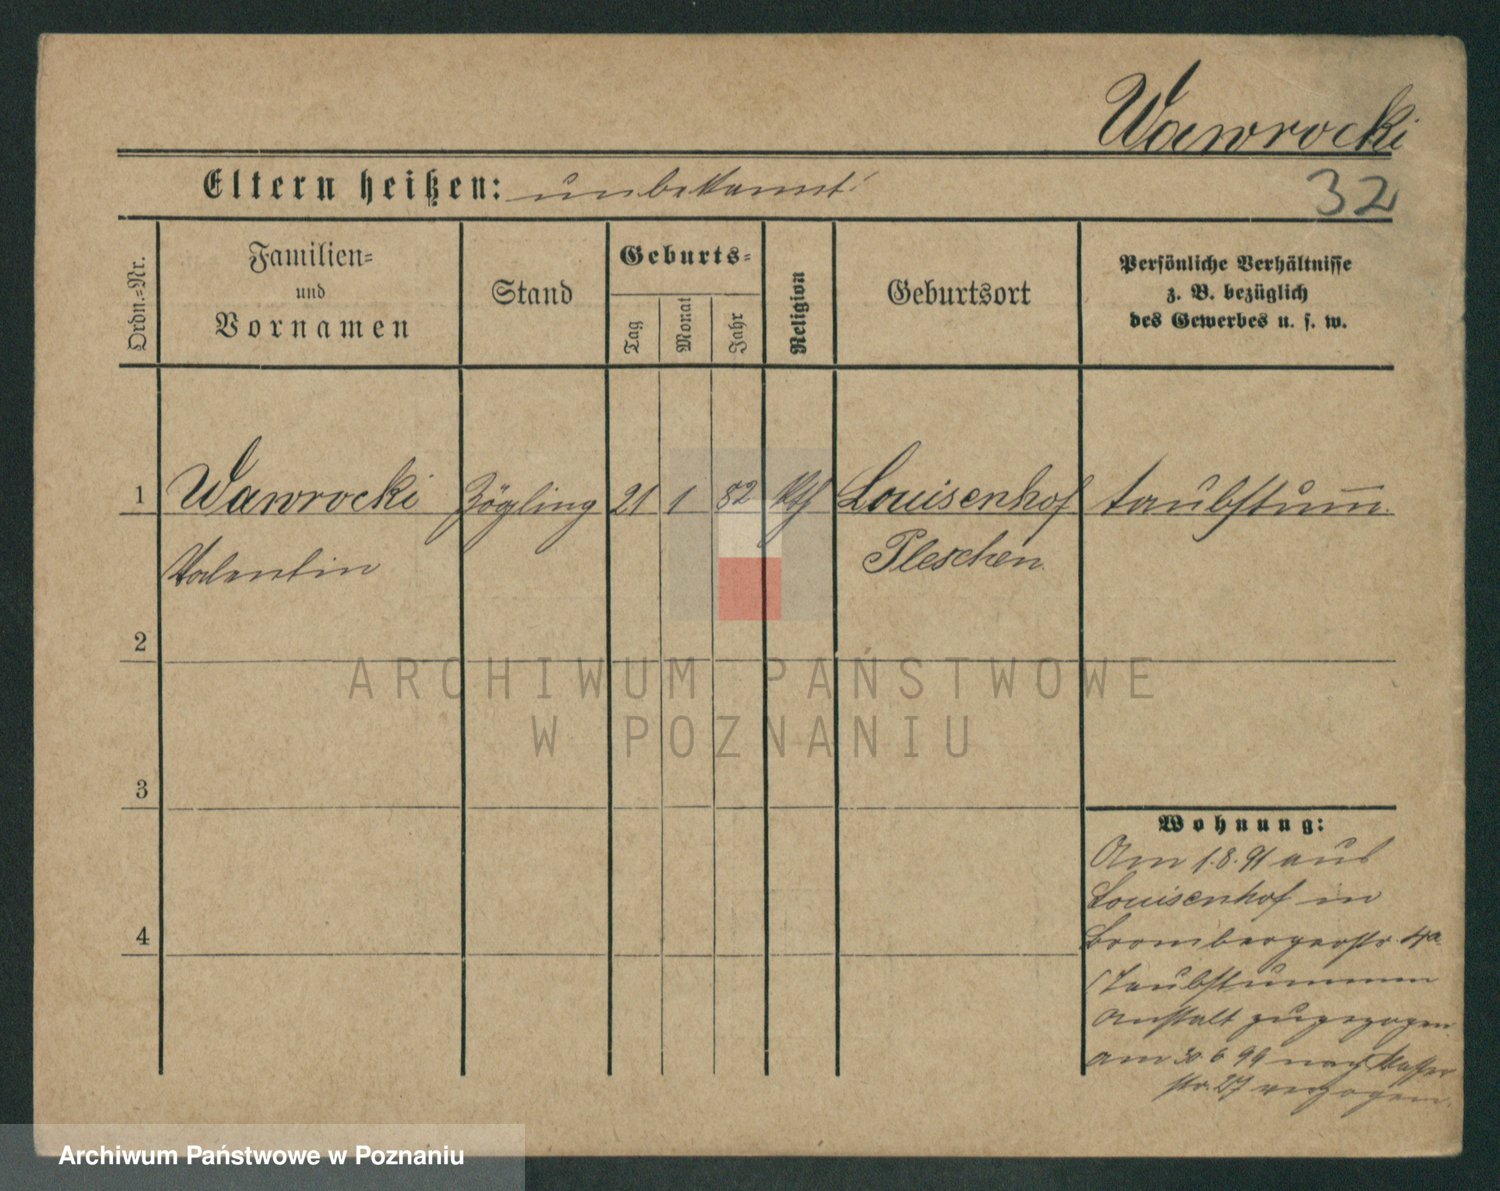 Wawrocki
Eltern heißen: unbekannt
32
Ordn.-Nr.
Familien-
und
Vornamen
Stand
Geburts-
Tag
Monat
Jahr
Religion
Geburtsort
Persönliche Verhältnisse
z. B. bezüglich
des Gewerbes u. s. w.
1 Wawrocki Zögling 21 1 82 kth Louisenhof taubstum̅
Valentin Pleschen
2
3
4
Wohnung:
Am 1.8.91 aus
Louisenhof in
Brombergerstr. 4a
(Taubstummen
Anstalt zugezogen
am 30.6.99 nach
str. 27 verzogen.
ARCHIWUM PAŃSTWOWE
W POZNANIU
Archiwum Państwowe w Poznaniu